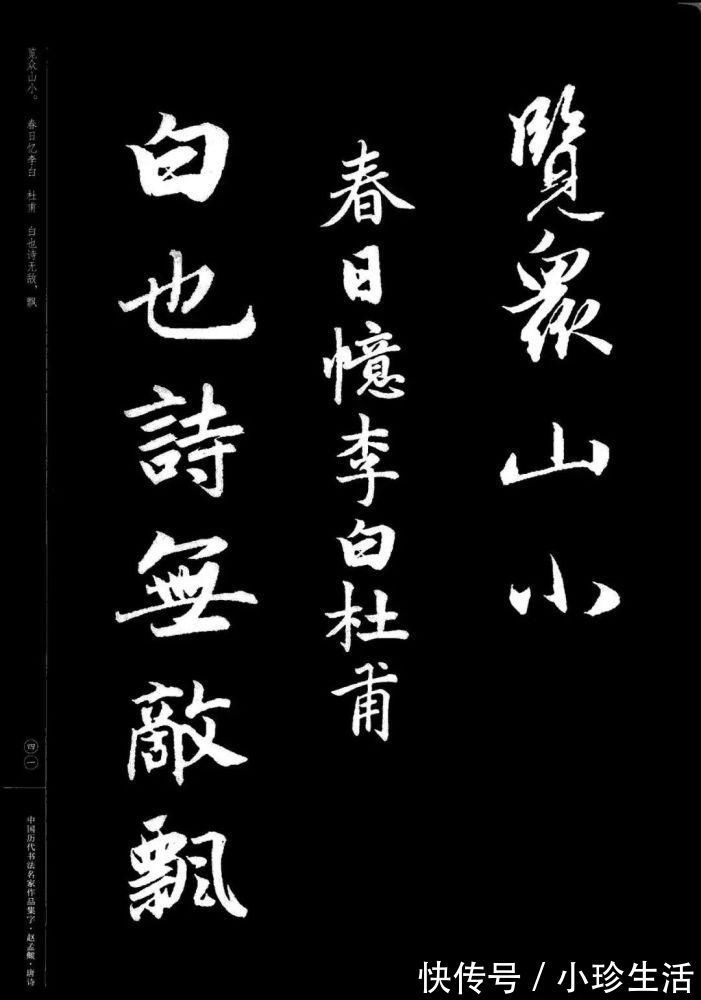 覽眾山小
春日憶李白杜甫
白也詩無敵飄
览众山小。 春日忆李白 杜甫 白也诗无敌，飘
四一
中国历代书法名家作品集字·赵孟頫·唐诗
快传号/小珍生活